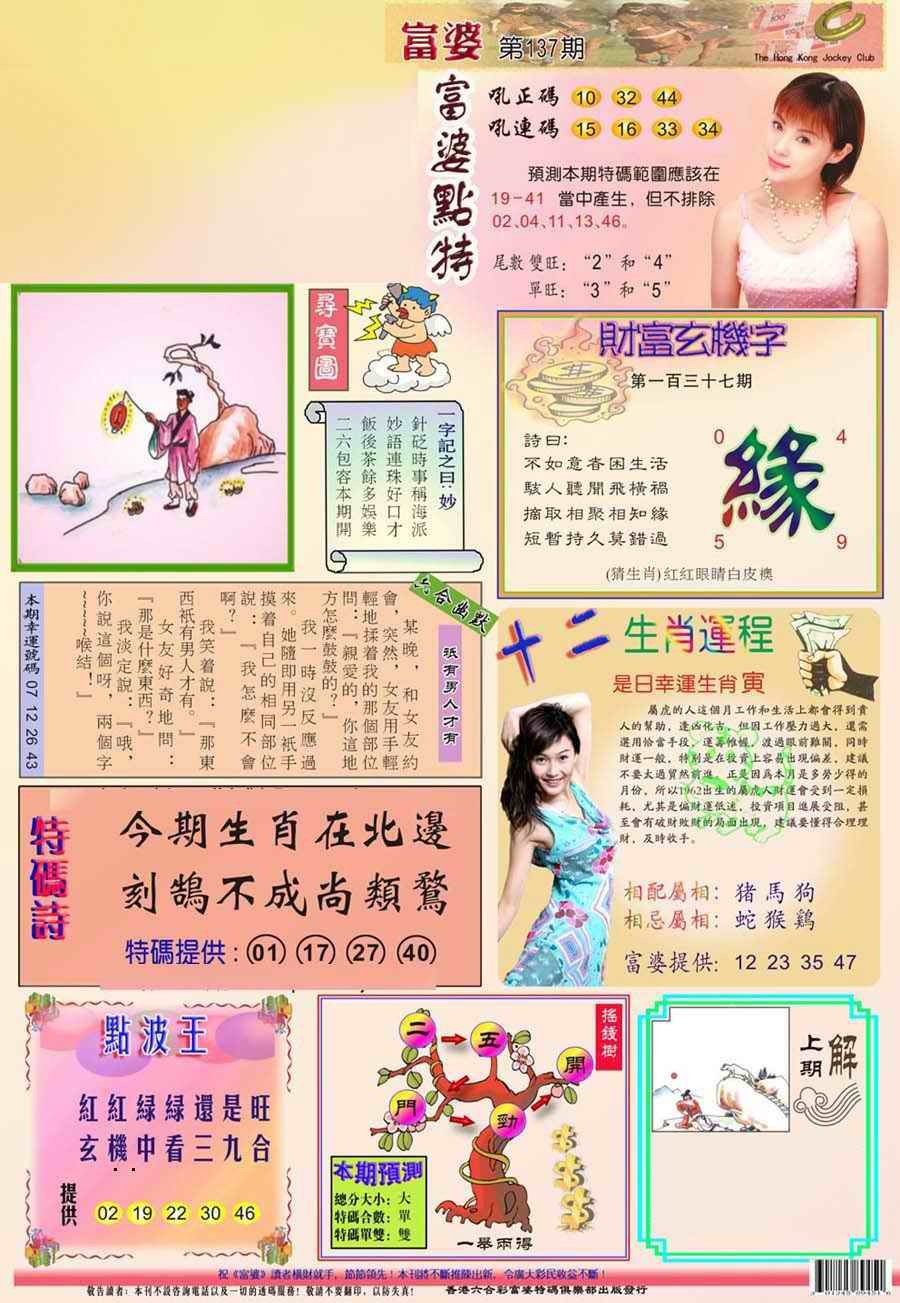 富婆 第137期
The Hong Kong Jockey Club
富婆點特
吼正碼 10 32 44
吼連碼 15 16 33 34
預測本期特碼範圍應該在
19-41 當中產生，但不排除
02、04、11、13、46。
尾數雙旺：“2”和“4”
單旺：“3”和“5”
尋寶圖
一字記之曰：妙
針砭時事稱海派
妙語連珠好口才
飯後茶餘多娛樂
二六包容本期開
財富玄機字
第一百三十七期
詩曰：
不如意者困生活
駭人聽聞飛橫禍
摘取相聚相知緣
短暫持久莫錯過
0 4
緣
5 9
(猜生肖)紅紅眼睛白皮襖
六合幽默
祇有男人才有
某晚，和女友約
會，突然，女友用手輕
輕地揉着我的那個部位
問：『親愛的，你這地
方怎麼鼓鼓的？』
我一時沒反應過
來。她隨即用另一衹手
摸着自己的相同部位
說：『我怎麼不會
啊？』
我笑着說：『那東
西衹有男人才有。』
女友好奇地問：
『那是什麼東西？』
我淡定說：『哦，
你說這個呀，兩個字
~~~~~喉結！』
本期幸運號碼 07 12 26 43
十二生肖運程
是日幸運生肖 寅
屬虎的人這個月工作和生活上都會得到貴
人的幫助，逢凶化吉。但因工作壓力過大，還需
選用恰當手段，運籌帷幄，渡過眼前難關，同時
財運一般，特別是在投資上容易出現偏差，建議
不要太過貿然前進。正是因爲本月是多勞少得的
月份，所以1962出生的屬虎人財運會受到一定損
耗，尤其是偏財運低迷，投資項目進展受阻，甚
至會有破財敗財的局面出現，建議要懂得合理理
財，及時收手。
相配屬相：豬 馬 狗
相忌屬相：蛇 猴 鷄
富婆提供：12 23 35 47
特碼詩
今期生肖在北邊
刻鵠不成尚類鶩
特碼提供：01 17 27 40
點波王
紅紅緑緑還是旺
玄機中看三九合
提供 02 19 22 30 46
搖錢樹
二 五
門 勁 開
本期預測
總分大小：大
特碼合數：單
特碼單雙：雙
一舉兩得
解上期
祝《富婆》讀者橫財就手，節節領先！本刊將不斷推陳出新，令廣大彩民收益不斷！
敬告讀者：本刊不設咨詢電話以及一切的透碼服務！敬請不要翻印，以防失真！ 香港六合彩富婆特碼俱樂部出版發行